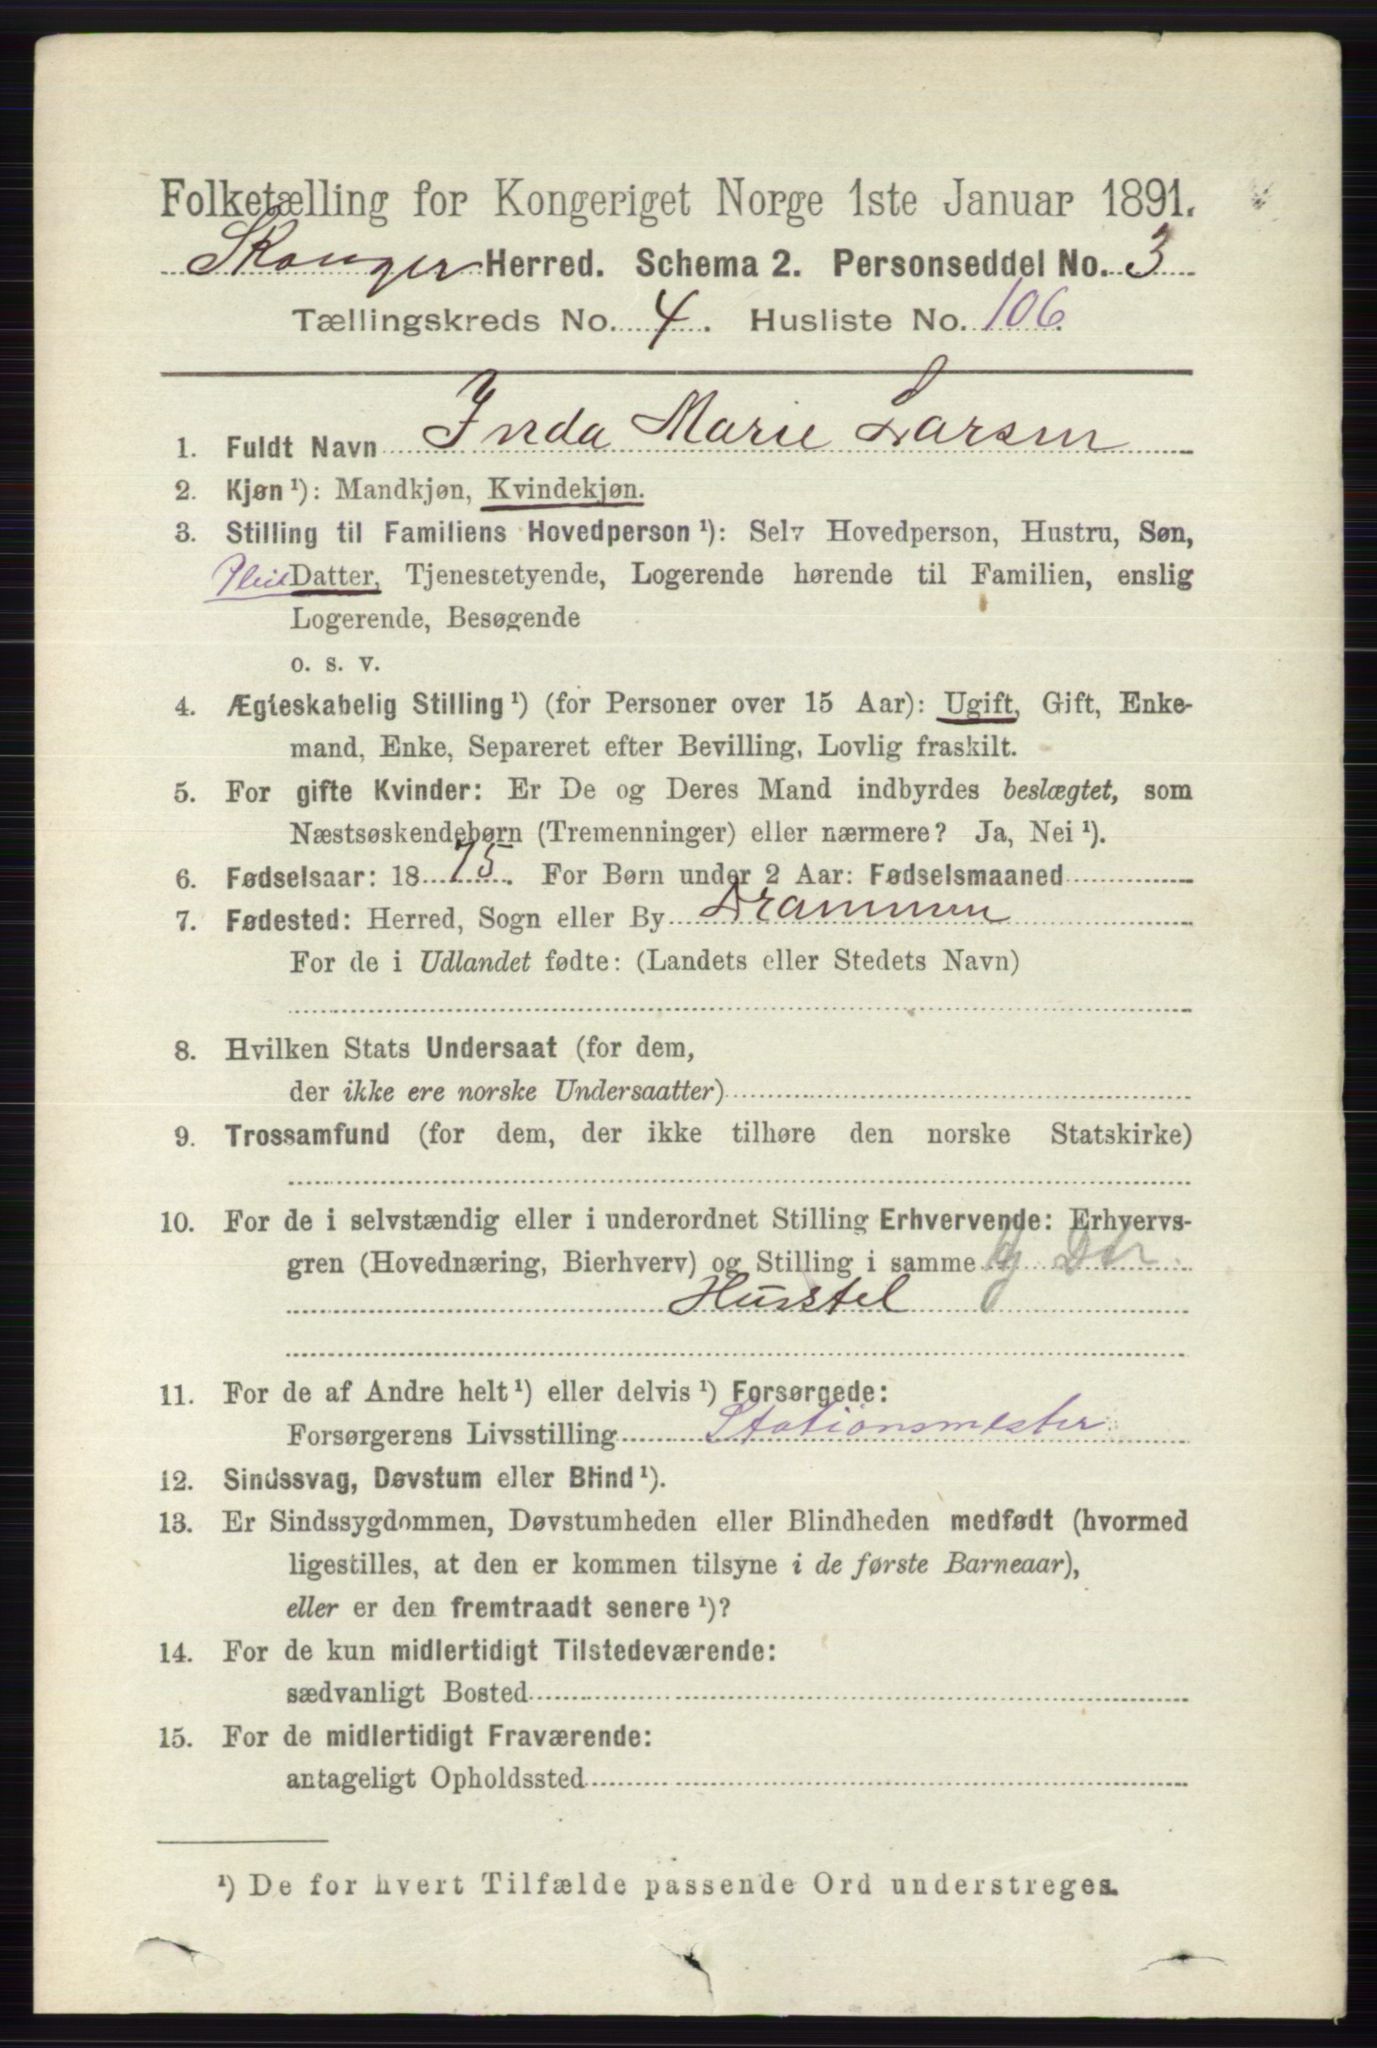 Folketælling for Kongeriget Norge 1ste Januar 1891.
Skouger Herred. Schema 2. Personseddel No. 3
Tællingskreds No. 4. Husliste No. 106.
1. Fuldt Navn Inda Marie Larsen
2. Kjøn ¹): Mandkjøn, Kvindekjøn.
3. Stilling til Familiens Hovedperson ¹): Selv Hovedperson, Hustru, Søn,
Pleie Datter, Tjenestetyende, Logerende hørende til Familien, enslig
Logerende, Besøgende
o. s. v.
4. Ægteskabelig Stilling ¹) (for Personer over 15 Aar): Ugift, Gift, Enke-
mand, Enke, Separeret efter Bevilling, Lovlig fraskilt.
5. For gifte Kvinder: Er De og Deres Mand indbyrdes beslægtet, som
Næstsøskendebørn (Tremenninger) eller nærmere? Ja, Nei ¹).
6. Fødselsaar: 1875. For Børn under 2 Aar: Fødselsmaaned
7. Fødested: Herred, Sogn eller By Drammen
For de i Udlandet fødte: (Landets eller Stedets Navn)
8. Hvilken Stats Undersaat (for dem,
der ikke ere norske Undersaatter)
9. Trossamfund (for dem, der ikke tilhøre den norske Statskirke)
10. For de i selvstændig eller i underordnet Stilling Erhvervende: Erhvervs-
gren (Hovednæring, Bierhverv) og Stilling i samme
Husstel
11. For de af Andre helt ¹) eller delvis ¹) Forsørgede:
Forsørgerens Livsstilling Stationsmester
12. Sindssvag, Døvstum eller Blind ¹).
13. Er Sindssygdommen, Døvstumheden eller Blindheden medfødt (hvormed
ligestilles, at den er kommen tilsyne i de første Barneaar),
eller er den fremtraadt senere ¹)?
14. For de kun midlertidigt Tilstedeværende:
sædvanligt Bosted
15. For de midlertidigt Fraværende:
antageligt Opholdssted
¹) De for hvert Tilfælde passende Ord understreges.